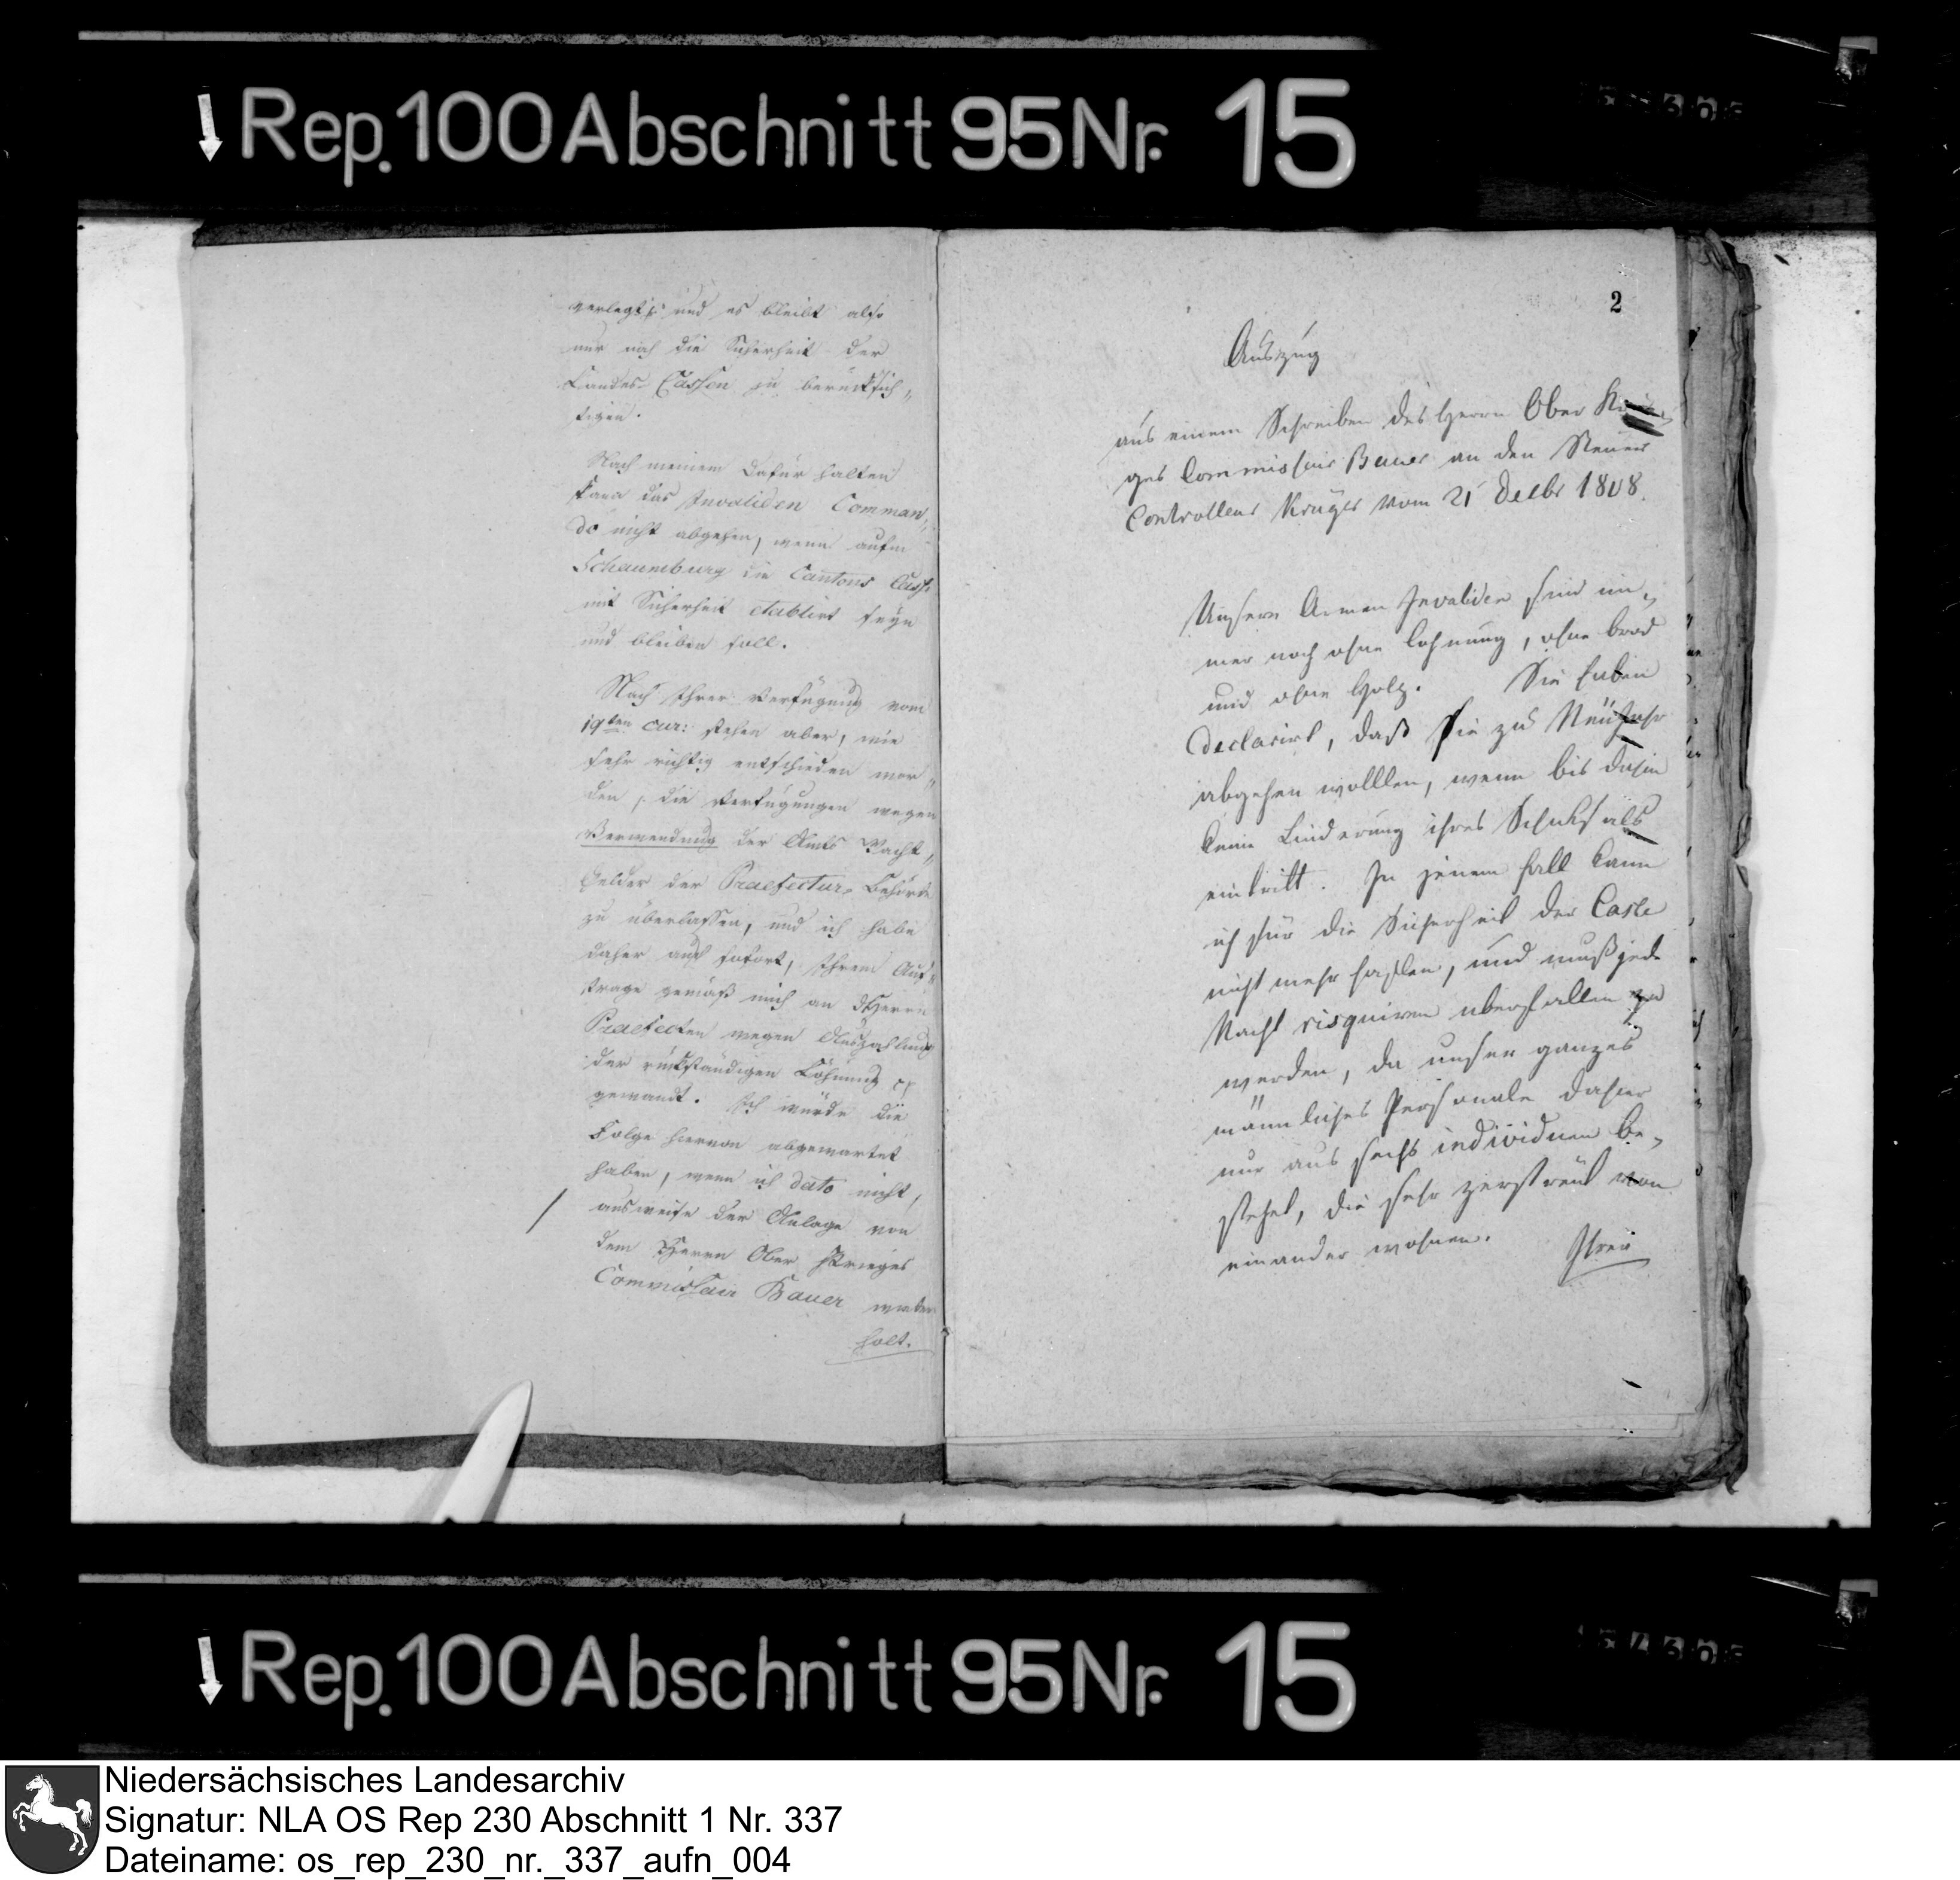 Rep. 100 Abschnitt 95 Nr. 15
verlegt; und es bleibt also
nur noch die Sicherheit der
Landes-Cassen zu berücksich„
tigen.
Nach meinem Dafür halten
kann das Invaliden Comman„
do nicht abgehen, wenn aufm
Schaumburg die Cantons Casse
mit Sicherheit etablirt seyn
und bleiben soll.
Nach Ihrer Verfügung vom
19ten cur: stehen aber, wie
sehr richtig entschieden wor„
den, die Verfügungen wegen
Verwendung der Amts Wacht„
Gelder der Praefectur-Behörde
zu überlassen, und ich habe
daher auch sofort, Ihrem Auf„
trage gemäß mich an dHerrn
Praefecten wegen Auszahlung
der rückständigen Löhnung
gewandt. Ich würde die
Folge hiervon abgewartet
haben, wenn ich dato nicht,
ausweise der Anlage von
dem Herrn Ober Krieges
Commissair Bauer wieder
holt.
2
Auszug
aus einem Schreiben des Herrn Ober
ges Commissair Bauer an den Steuer
Controlleur Krüger vom 21 Decbr 1808.
Unsere Armen Invaliden sind im„
mer noch ohne Lohnung, ohne brod
und ohne Holz. Sie haben
declarirt, daß sie zu Neujahr
abgehen wolllen, wenn bis dahin
keine Linderung ihres Schicksals
eintritt. In jenem fall kann
ich für die Sicherheit der Casse
nicht mehr haften, und muß jede
Nacht risquiren uberfallen zu
werden, da unser ganzes
männliches Personale dahier
nur aus sechs individuen be„
stehet, die sehr zerstreut von
einander wohnen.
Rep. 100 Abschnitt 95 Nr. 15
Niedersächsisches Landesarchiv
Signatur: NLA OS Rep 230 Abschnitt 1 Nr. 337
Dateiname: os_rep_230_nr._337_aufn_004